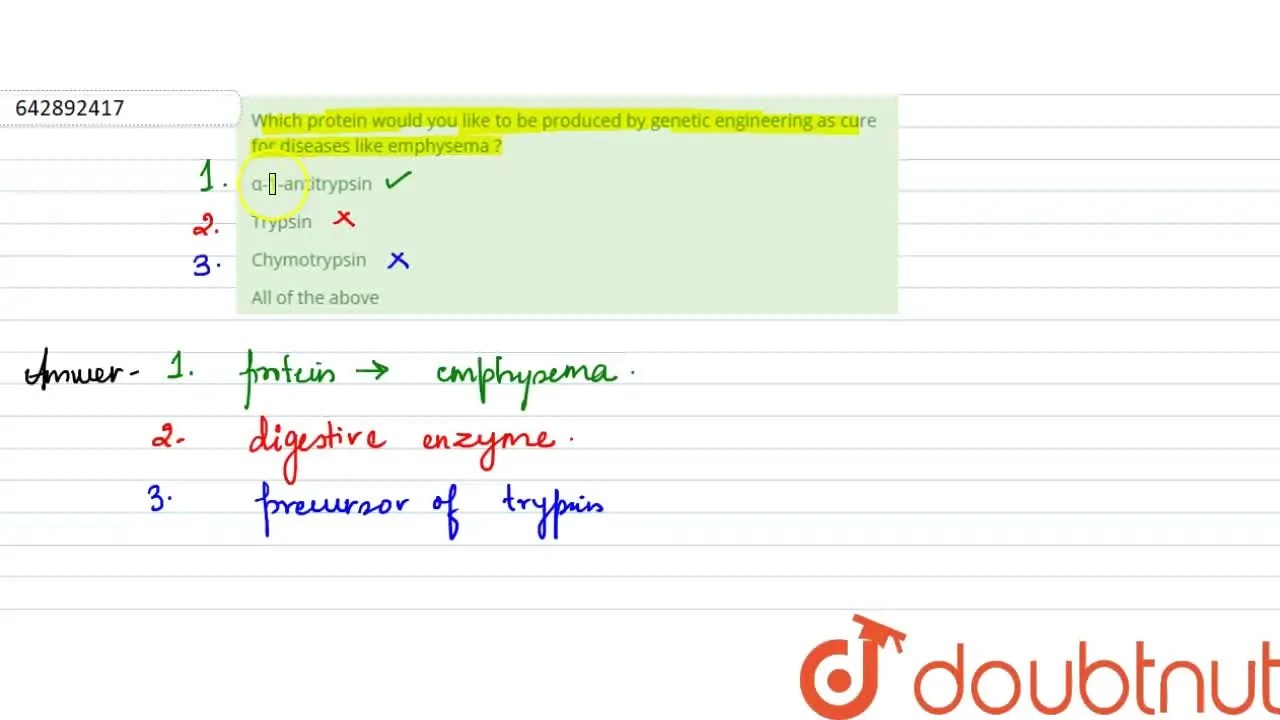 642892417
Which protein would you like to be produced by genetic engineering as cure
for diseases like emphysema ?
1. α-1-antitrypsin ✓
2. Trypsin ×
3. Chymotrypsin ×
All of the above
Answer- 1. protein → emphysema.
2. digestive enzyme.
3. precursor of trypsin
doubtnut